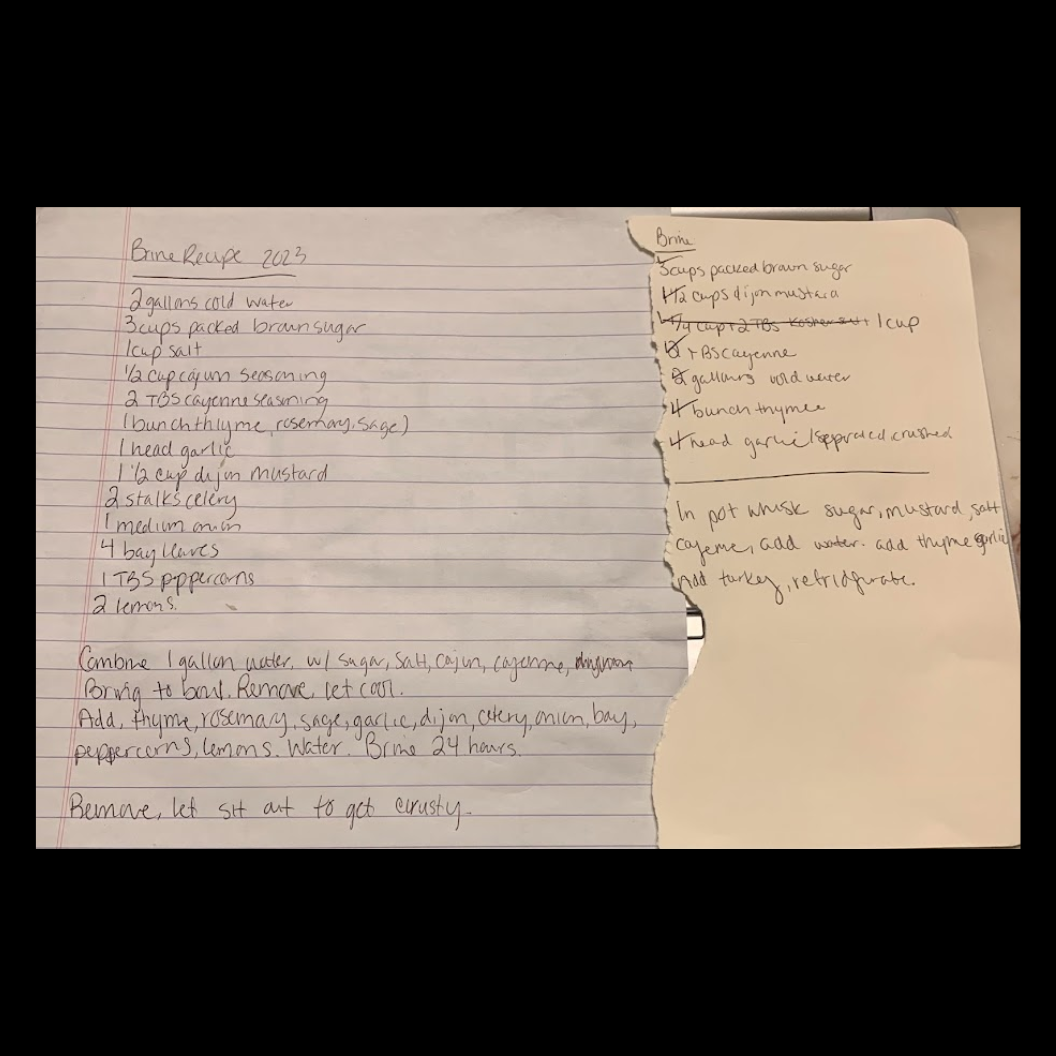 Brine Recipe 2023
2 gallons cold water
3 cups packed brown sugar
1 cup salt
1/2 cup cajun seasoning
2 TBS cayenne seasoning
1 bunch thyme, rosemary, sage)
1 head garlic
1 1/2 cup dijon mustard
2 stalks celery
1 medium onion
4 bay leaves
1 TBS pppercorns
2 lemons.
Combine 1 gallon water, w/ sugar, salt, cajun, cayenne,
Bring to boil. Remove, let cool.
Add, thyme, rosemary, sage, garlic, dijon, celery, onion, bay,
peppercorns, lemons. Water. Brine 24 hours.
Remove, let sit out to get crusty.
Brine
3 cups packed brown sugar
1 1/2 cups dijon mustard
1/4 cup + 2 TBS kosher salt 1 cup
TBS cayenne
2 gallons cold water
bunch thyme
head garlic crushed
In pot whisk sugar, mustard, salt
cayenne, add water. add thyme garlic
Add turkey, refridgurate.